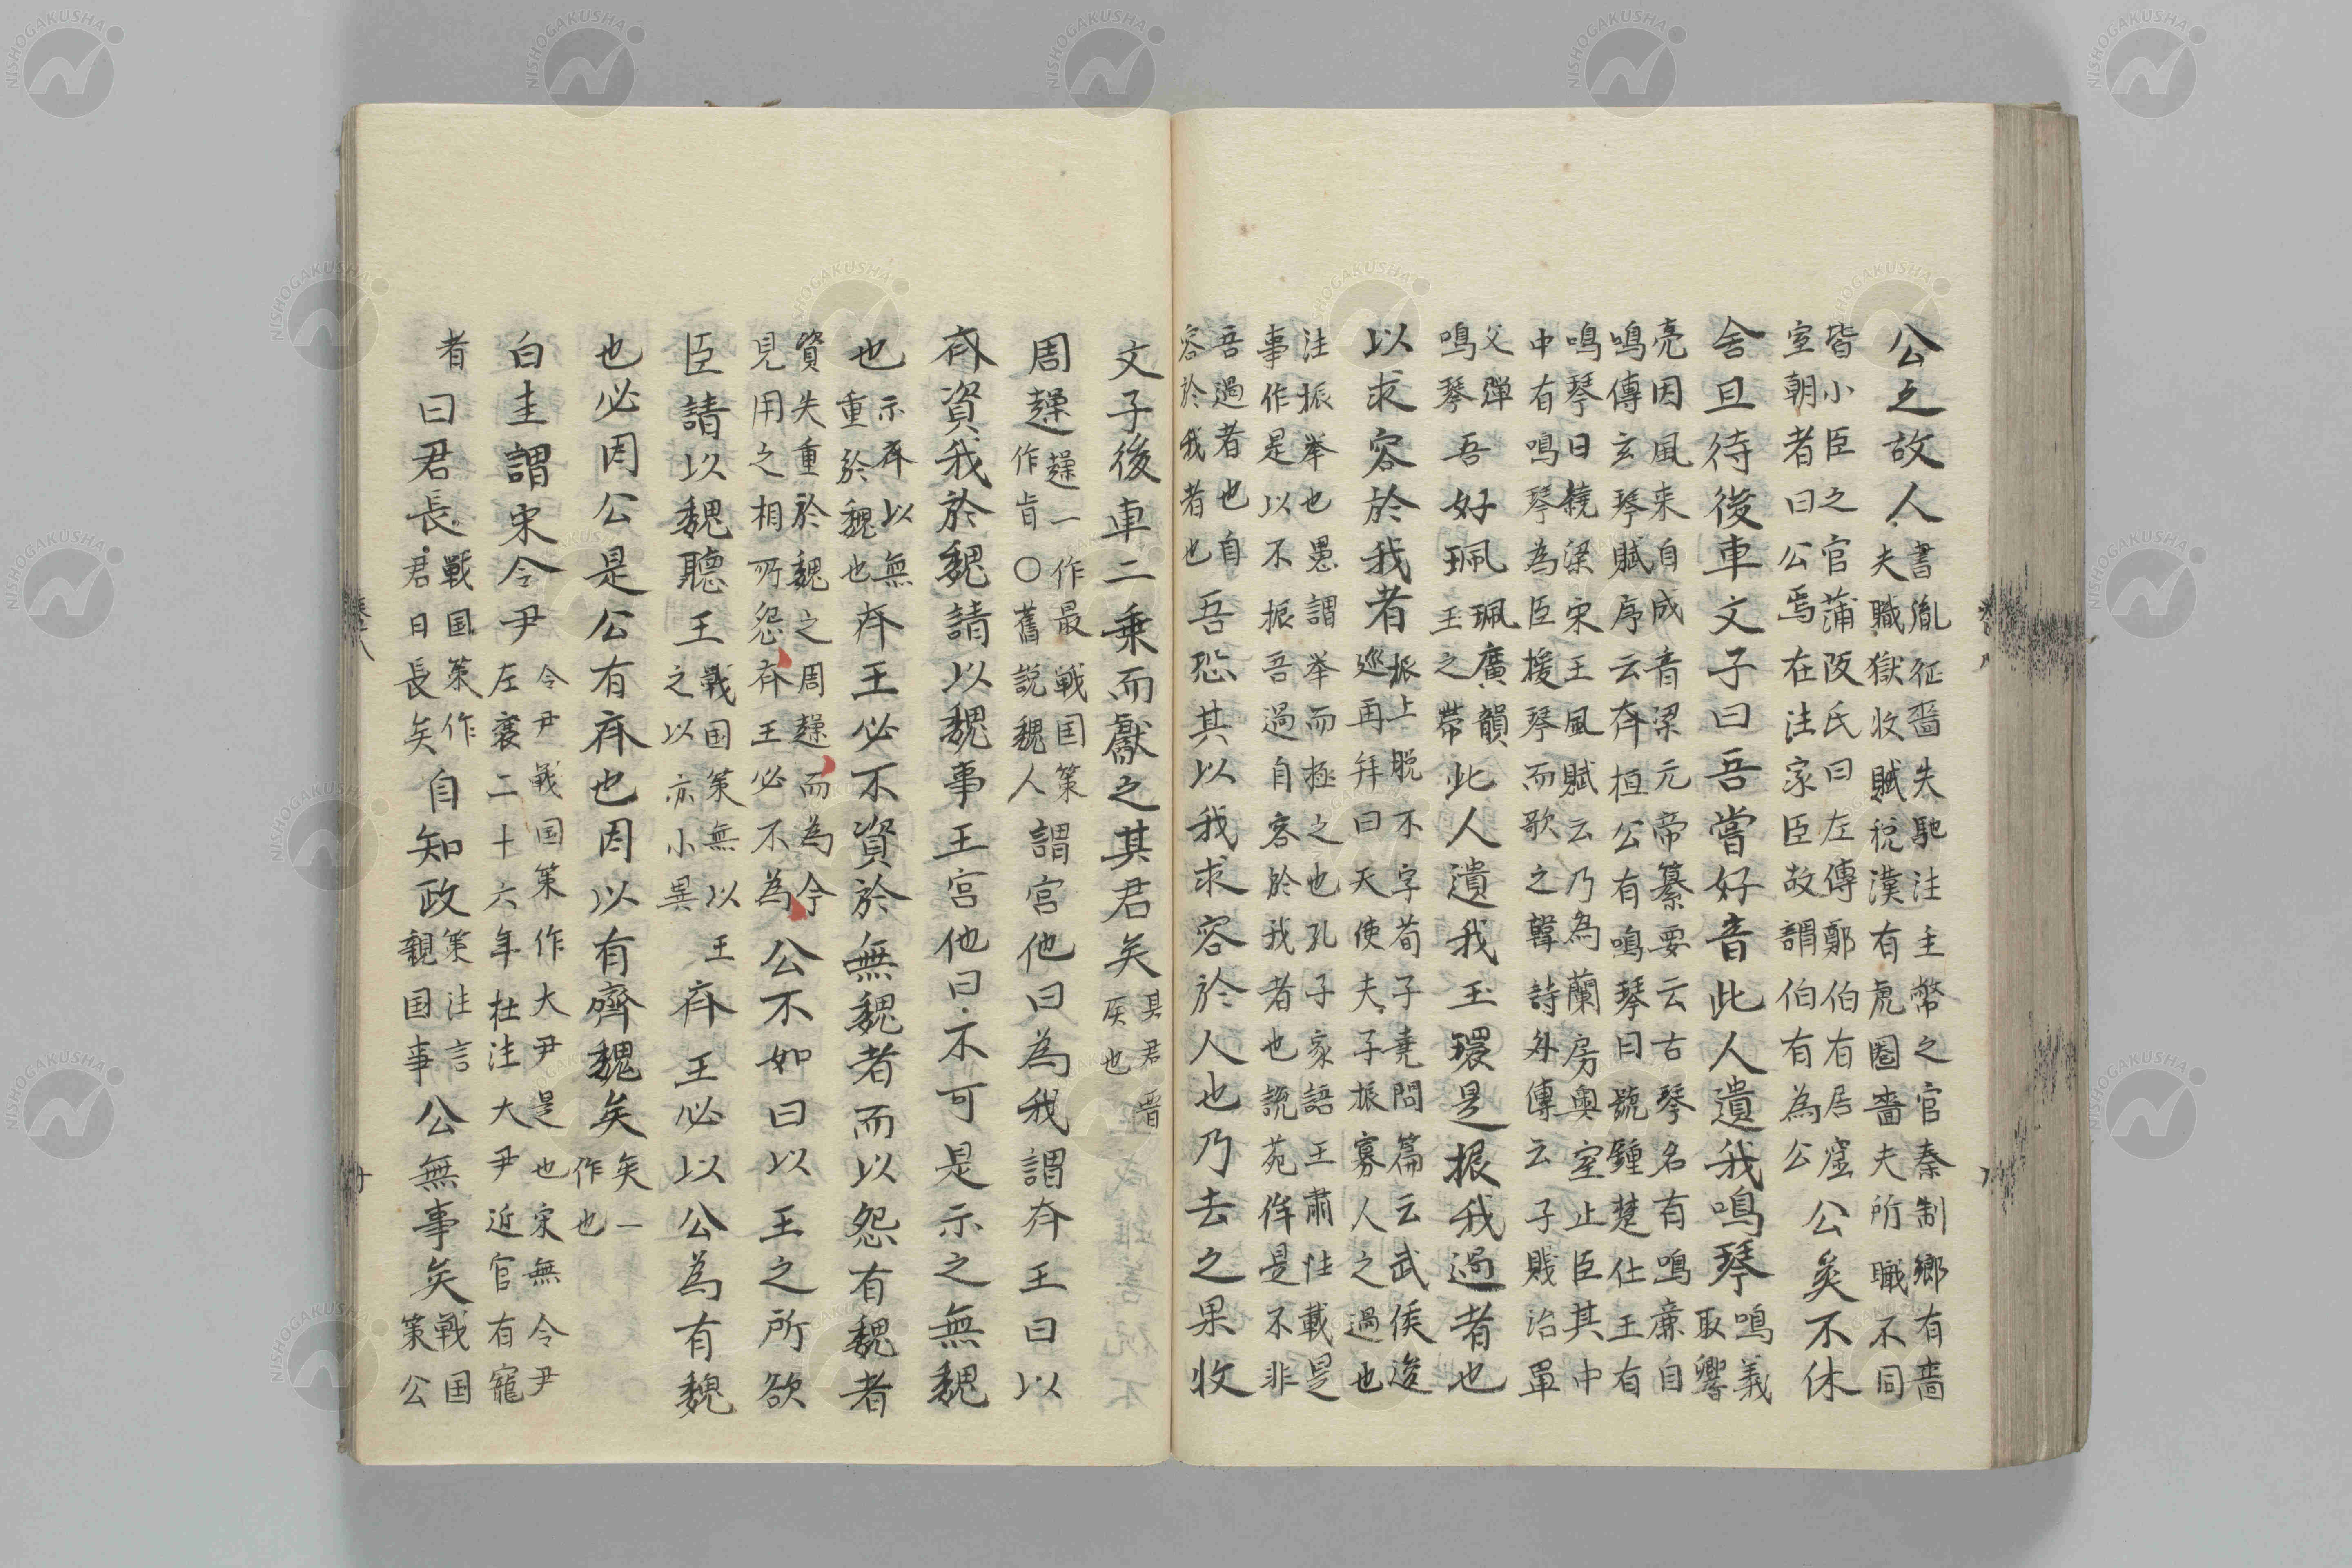 公之故人書胤征嗇夫馳注主幣之官秦制鄉有嗇
夫職獄收賦税漢有虎圈嗇夫所職不同
皆小臣之官蒲阪氏曰左傳鄭伯有居窟
室朝者曰公焉在注家臣故謂伯有為公公奚不休
舍且待後車文子曰吾嘗好音此人遺我鳴琴鳴義
取響
亮因風来自成音梁元帝纂要云古琴名有鳴廉自
鳴傳玄琴賦序云斉桓公有鳴琴曰號鍾楚仕王有
鳴琴曰繞梁宋王風賦云乃為蘭房奥室止臣其中
中有鳴琴為臣援琴而歌之韓詩外傳云子賎治單
父弾
鳴琴吾好珮珮廣韻
玉之帶此人遺我玉環是振我過者也
以求容於我者振上脱不字荀子堯問篇云武侯逡
巡再拜曰天使夫子振寡人之過也
注振挙也愚謂挙而極之也孔子家語王肅注載是
事作是以不振吾過自容於我者也説苑侔是不非
吾過者也自
容於我者也吾恐其以我求容於人也乃去之果收
文子後車二乗而獻之其君矣其君晋
侯也
周趮趮一作最戦国策
作肯〇舊説魏人謂宮他曰為我謂斉王曰以
斉資我於魏請以魏事王宮他曰不可是示之無魏
也示斉以無
重於魏也斉王必不資於無魏者而以怨有魏者
資失重於魏之周趮而為今
見用之相所怨斉王必不為公不如曰以王之所欲
臣請以魏聽王戦国策無以王
之以亦小異斉王必以公為有魏
也必因公是公有斉也因以有齊魏矣矣一
作也
白圭謂宋令尹令尹戦国策作大尹是也宋無令尹
左襄二十六年杜注大尹近官有寵
者曰君長戰国策作
君日長矣自知政策注言
親国事公無事矣戦国
策公